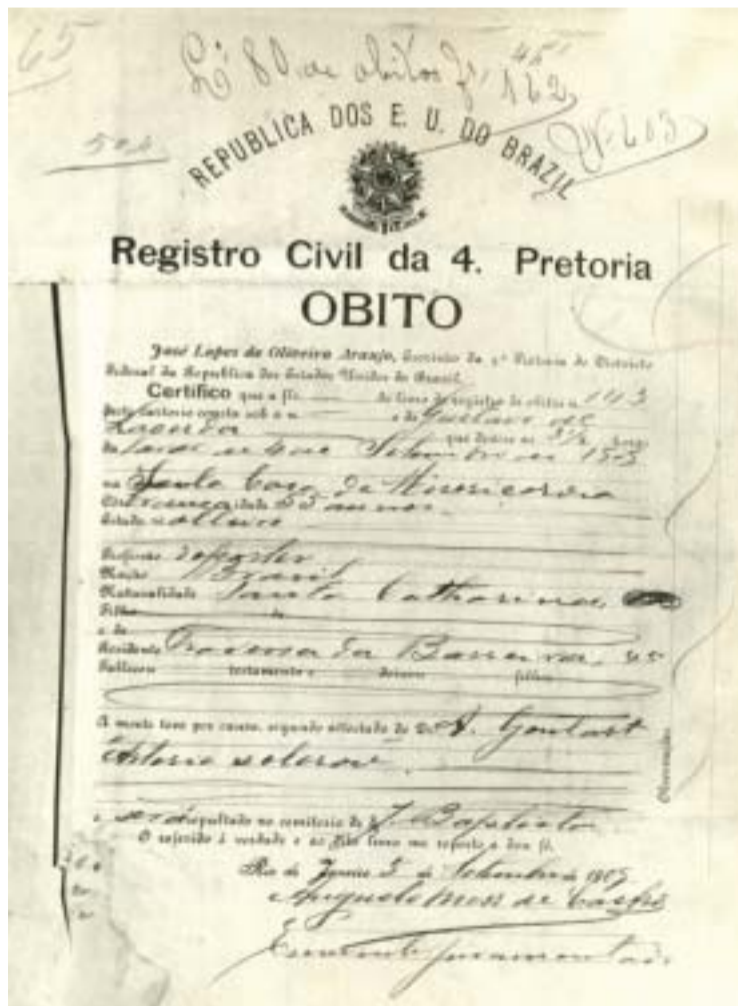 65
Lº 80 de obitos fl 162
REPUBLICA DOS E. U. DO BRAZIL
Nº 603
Registro Civil da 4. Pretoria
OBITO
José Lopes de Oliveira Araujo, Escrivão da 4ª Pretoria do Districto
Federal da Republica dos Estados Unidos do Brazil.
Certifico que a fls. do livro de registro de obitos n. 143
deste cartorio consta sob o n. o de Gustavo de
Lacerda que
Setembro de
na Santa Casa de Misericordia
Côr branca idade 55 annos
Estado solteiro
Profissão reporter
Nação Brazil
Naturalidade Santa Catharina
Filho de
e de
Residente Travessa da Barreira, 25
Falleceu testamento e deixou filhos
A morte teve por causa, segundo attestado do Dr. A. Goulart
será sepultado no cemiterio de S. J. Baptista
O referido é verdade e ao dito livro me reporto e dou fé.
Rio de Janeiro 5 de Setembro de 1909
Augusto de Castro
Escrevente juramentado
Observações